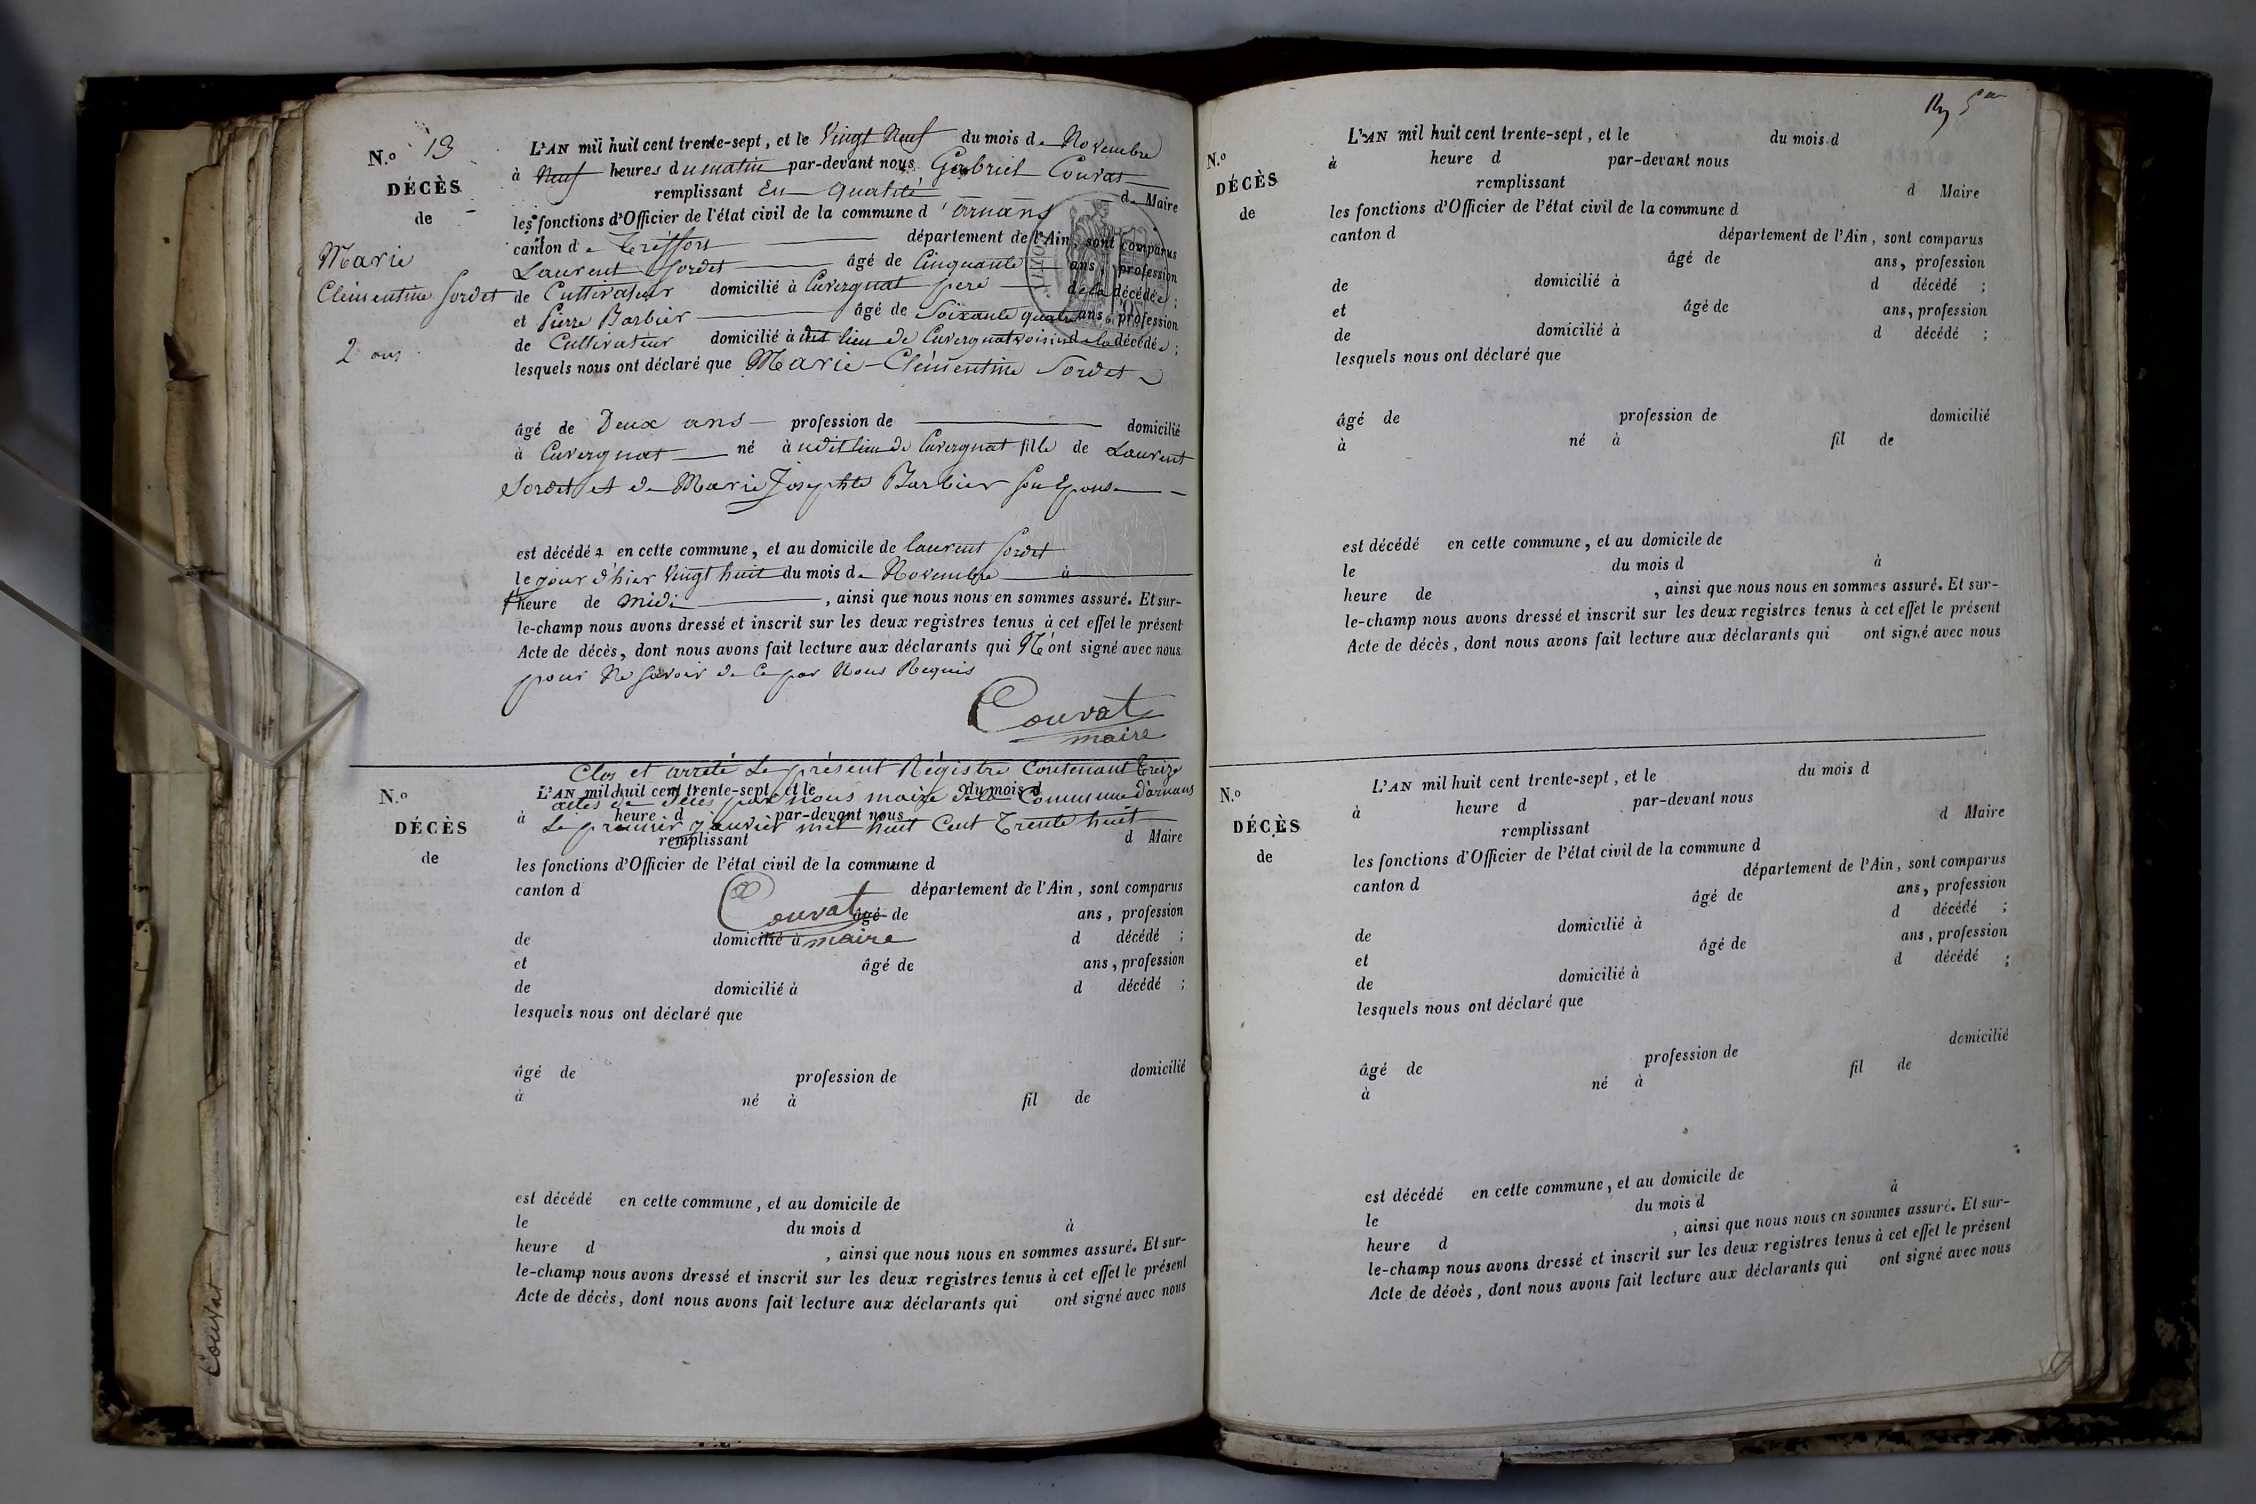 N.o 13
DÉCÈS
de
Marie
Clémentine Sordet
2 ans
L'AN mil huit cent trente-sept, et le Vingt Neuf du mois de Novembre
à Neuf heures du matin par-devant nous Gabriel Couvat
remplissant En qualité de Maire
les fonctions d'Officier de l'état civil de la commune d'arnans
canton de Treffort département de l'Ain, sont comparus
Laurent Sordet âgé de Cinquante ans, profession
de Cultivateur domicilié à Cuvergnat père de la décédée ;
et Pierre Barbier âgé de Soixante quatre ans, profession
de Cultivateur domicilié à dit lieu de Cuvergnat voisin de la décédée ;
lesquels nous ont déclaré que Marie-Clémentine Sordet
âgé de Deux ans profession de domicilié
à Cuvergnat né audit lieu de Cuvergnat fille de Laurent
Sordet et de Marie Josephte Barbier son Epouse
est décédée en cette commune, et au domicile de laurent Sordet
le jour d'hier Vingt huit du mois de Novembre à
heure de midi, ainsi que nous nous en sommes assuré. Et sur-
le-champ nous avons dressé et inscrit sur les deux registres tenus à cet effet le présent
Acte de décès, dont nous avons fait lecture aux déclarants qui N'ont signé avec nous
pour Ne Savoir de Ce par Nous Requis
Couvat
maire
Clos et arrêté le présent Régistre Contenant Treize
actes de décès par nous maire de la Commune d'arnans
Le premier janvier mil huit Cent Trente huit
Couvat
maire
N.o
DÉCÈS
de
L'AN mil huit cent trente-sept, et le du mois d
à heure d par-devant nous
remplissant d Maire
les fonctions d'Officier de l'état civil de la commune d
canton d département de l'Ain, sont comparus
âgé de ans, profession
de domicilié à d décédé ;
et âgé de ans, profession
de domicilié à d décédé ;
lesquels nous ont déclaré que
âgé de profession de domicilié
à né à fil de
est décédé en cette commune, et au domicile de
le du mois d à
heure d , ainsi que nous nous en sommes assuré. Et sur-
le-champ nous avons dressé et inscrit sur les deux registres tenus à cet effet le présent
Acte de décès, dont nous avons fait lecture aux déclarants qui ont signé avec nous
Couvat
N.o
DÉCÈS
de
L'AN mil huit cent trente-sept, et le du mois d
à heure d par-devant nous
remplissant d Maire
les fonctions d'Officier de l'état civil de la commune d
canton d département de l'Ain, sont comparus
âgé de ans, profession
de domicilié à d décédé ;
et âgé de ans, profession
de domicilié à d décédé ;
lesquels nous ont déclaré que
âgé de profession de domicilié
à né à fil de
est décédé en cette commune, et au domicile de
le du mois d à
heure de , ainsi que nous nous en sommes assuré. Et sur-
le-champ nous avons dressé et inscrit sur les deux registres tenus à cet effet le présent
Acte de décès, dont nous avons fait lecture aux déclarants qui ont signé avec nous
N.o
DÉCÈS
de
L'AN mil huit cent trente-sept, et le du mois d
à heure d par-devant nous
remplissant d Maire
les fonctions d'Officier de l'état civil de la commune d
canton d département de l'Ain, sont comparus
âgé de ans, profession
de domicilié à d décédé ;
et âgé de ans, profession
de domicilié à d décédé ;
lesquels nous ont déclaré que
âgé de profession de domicilié
à né à fil de
est décédé en cette commune, et au domicile de
le du mois d à
heure d , ainsi que nous nous en sommes assuré. Et sur-
le-champ nous avons dressé et inscrit sur les deux registres tenus à cet effet le présent
Acte de décès, dont nous avons fait lecture aux déclarants qui ont signé avec nous